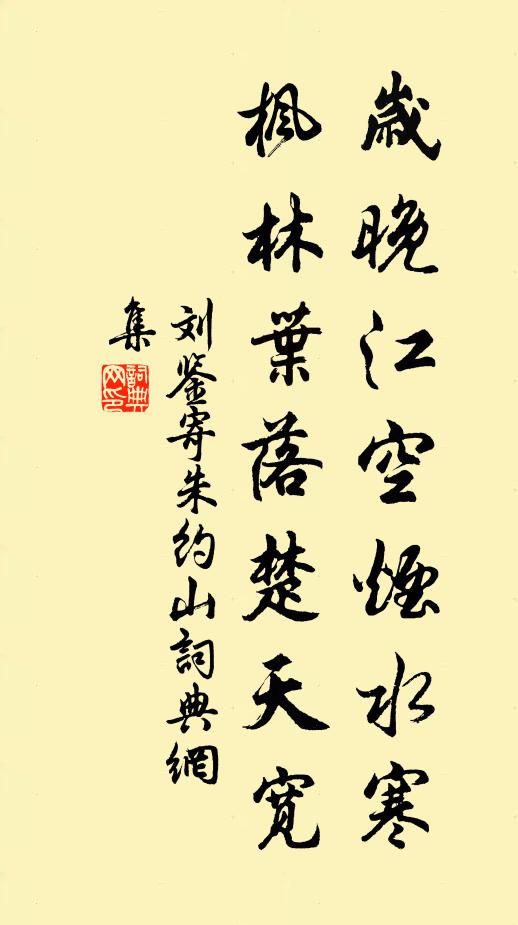 歳晚江空煙水寒
枫林葉落楚天寬
刘鉴寄朱约山詞典網
集
詞典
网印